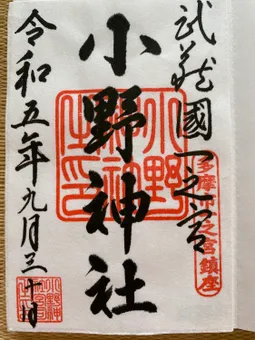 武蔵國一之宮
多摩市一之宮鎮座
小野神社
小野神社之印
令和五年九月三十日